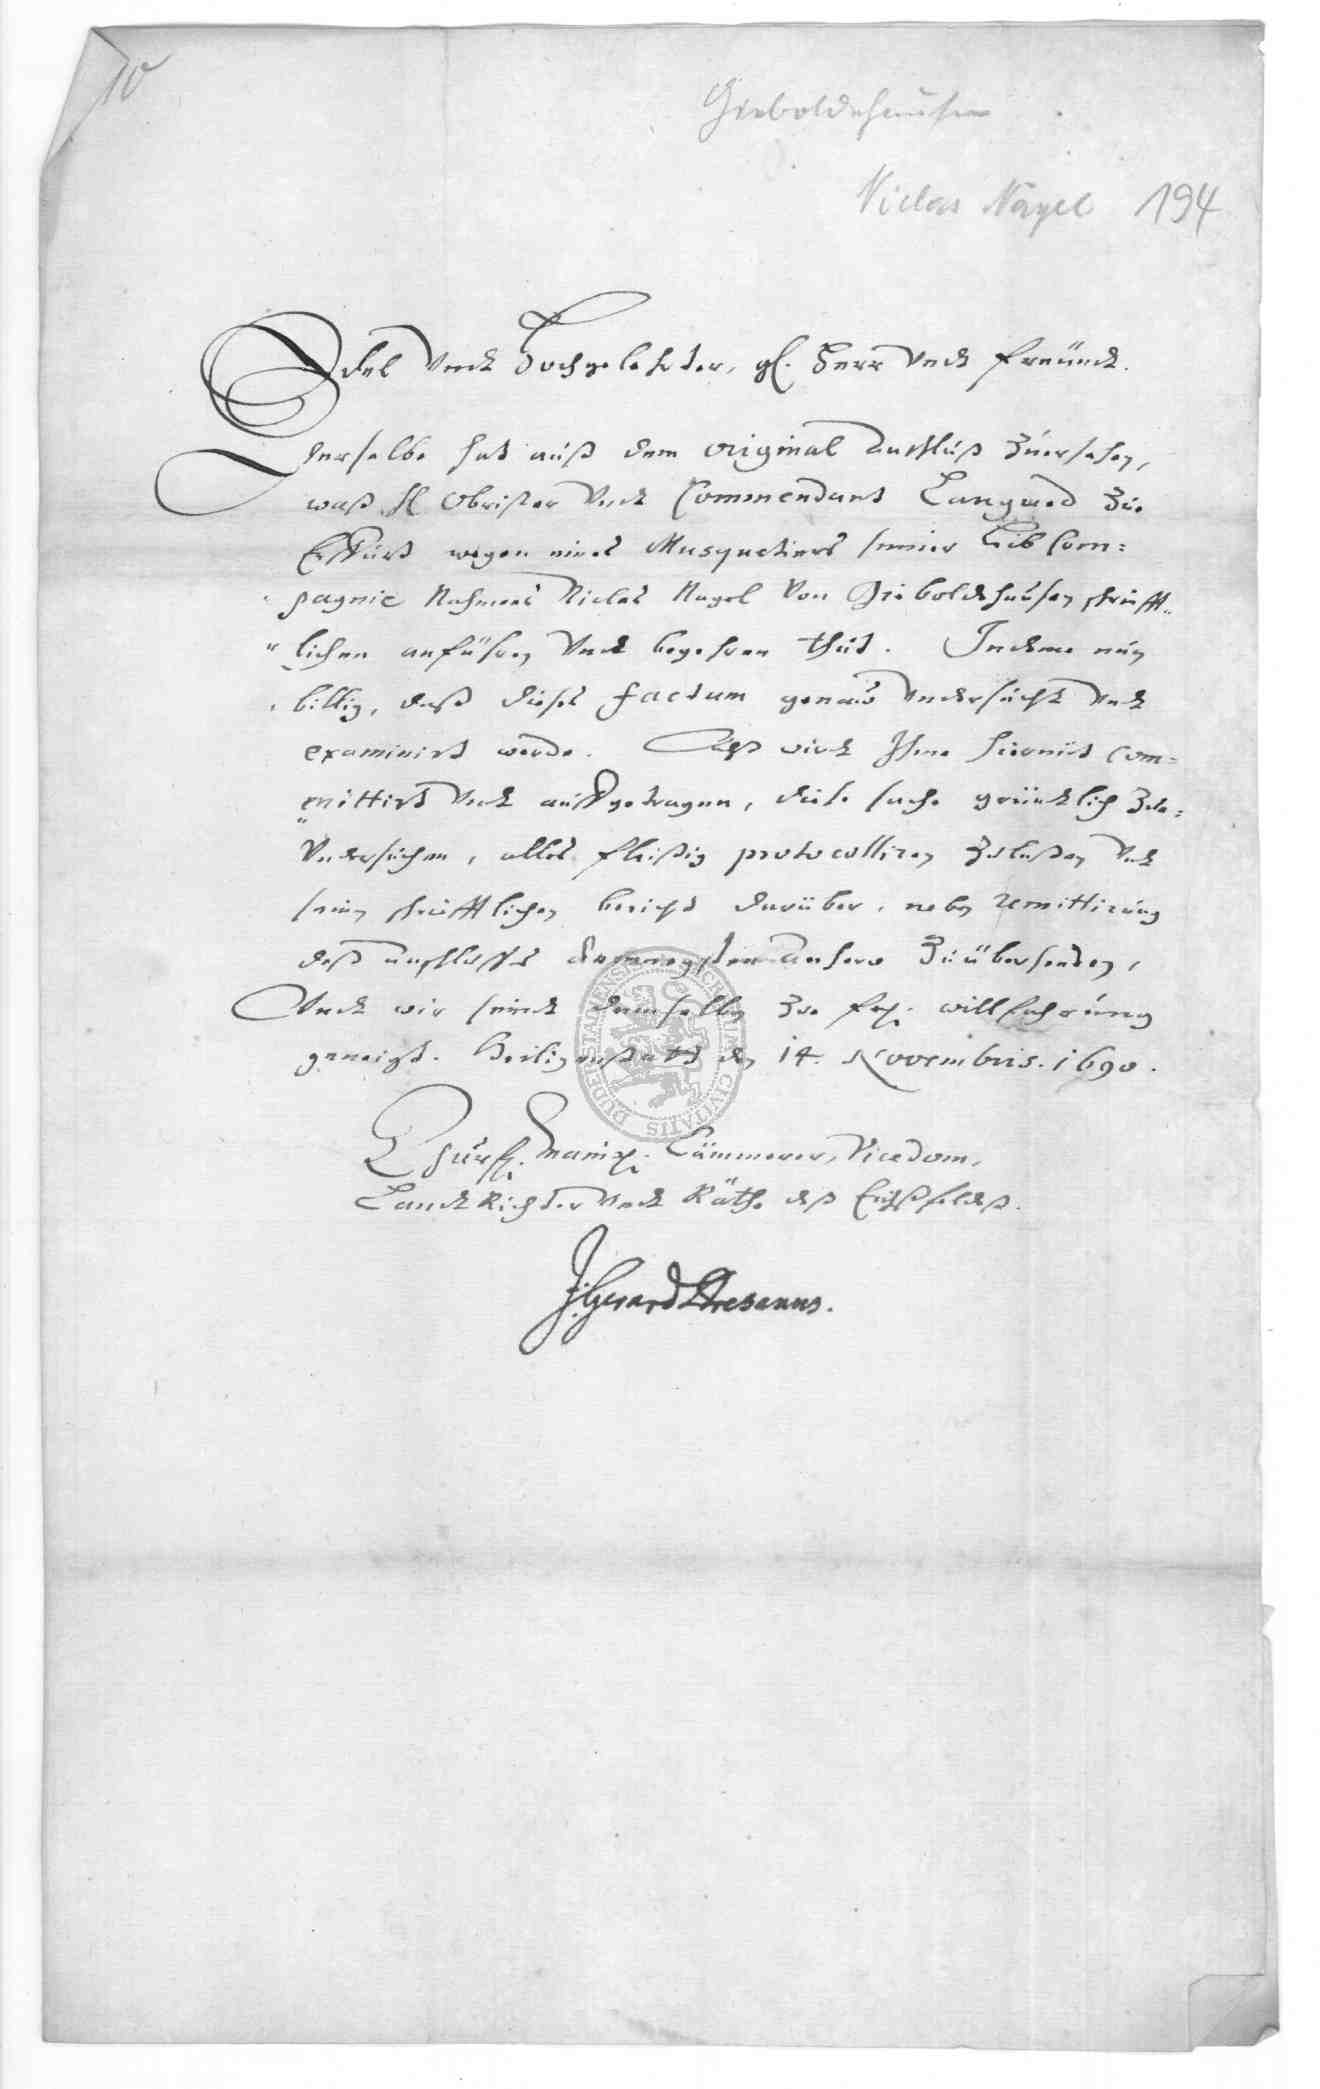 10
Gieboldehausen
Niclas Nagel 194
Edel undt Hochgelehrter, gl. Herr undt Freündt.
Derselbe hat auß dem original Anschluß zuersehen,
waß H. Obrister undt Commendant Langwed zue
Erffurt wegen eines Musquetiers seiner Leib Com=
pagnie Nahmens Niclas Nagel von Gieboldehausen schrifft=
lichen anführen undt begehren thut. Indeme nun
billig, daß dieses factum genaw undersucht undt
examinirt werde. Alß wirdt Ihme hiermit com=
mittirt undt auffgetragen, diese sache gründtlich zue=
undersuchen, alles fleißig protocolliren zulaßen undt
seinen schrifftlichen bericht darüber, neben remittirung
deß anschlusses anhero zuübersenden,
Undt wir seindt demselben zue willfahrung
geneigt. Heiligenstatt den 14. Novembris. 1690.
Churf. Maintz. Cämmerer, Vicedom,
Landt Richter undt Räthe deß Eichßfeldeß.
DUDERSTADIENSIS CIVITATIS